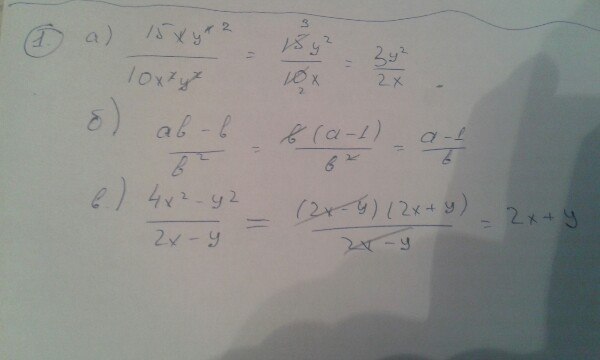 1. а) 15xy⁴ ² / 10x²y² = 15y² / 10x = 3y² / 2x .
3
2
б) ab - b / b² = b(a-1) / b² = a-1 / b
в.) 4x² - y² / 2x - y = (2x - y)(2x + y) / 2x - y = 2x + y